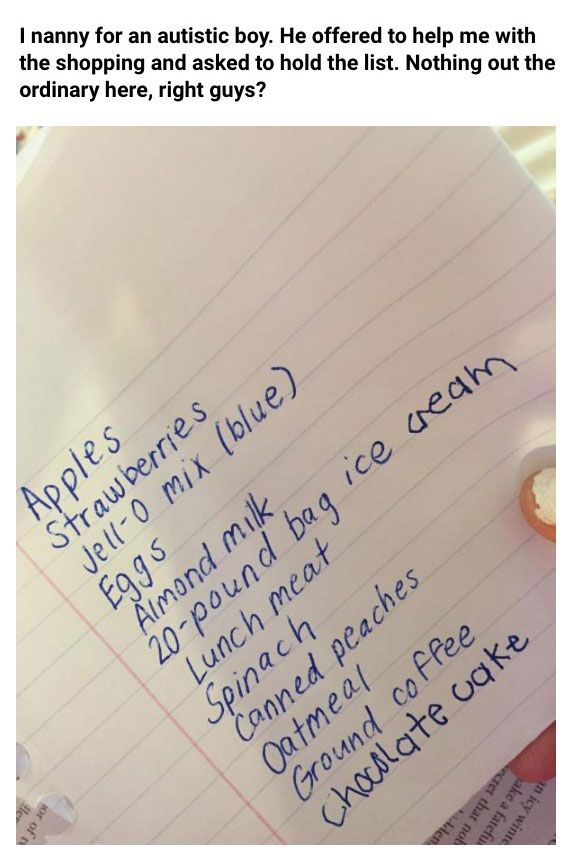 I nanny for an autistic boy. He offered to help me with
the shopping and asked to hold the list. Nothing out the
ordinary here, right guys?
Apples
Strawberries
Jell-O mix (blue)
Eggs
Almond milk
20-pound bag ice cream
Lunch meat
Spinach
Canned peaches
Oatmeal
Ground coffee
chocolate cake